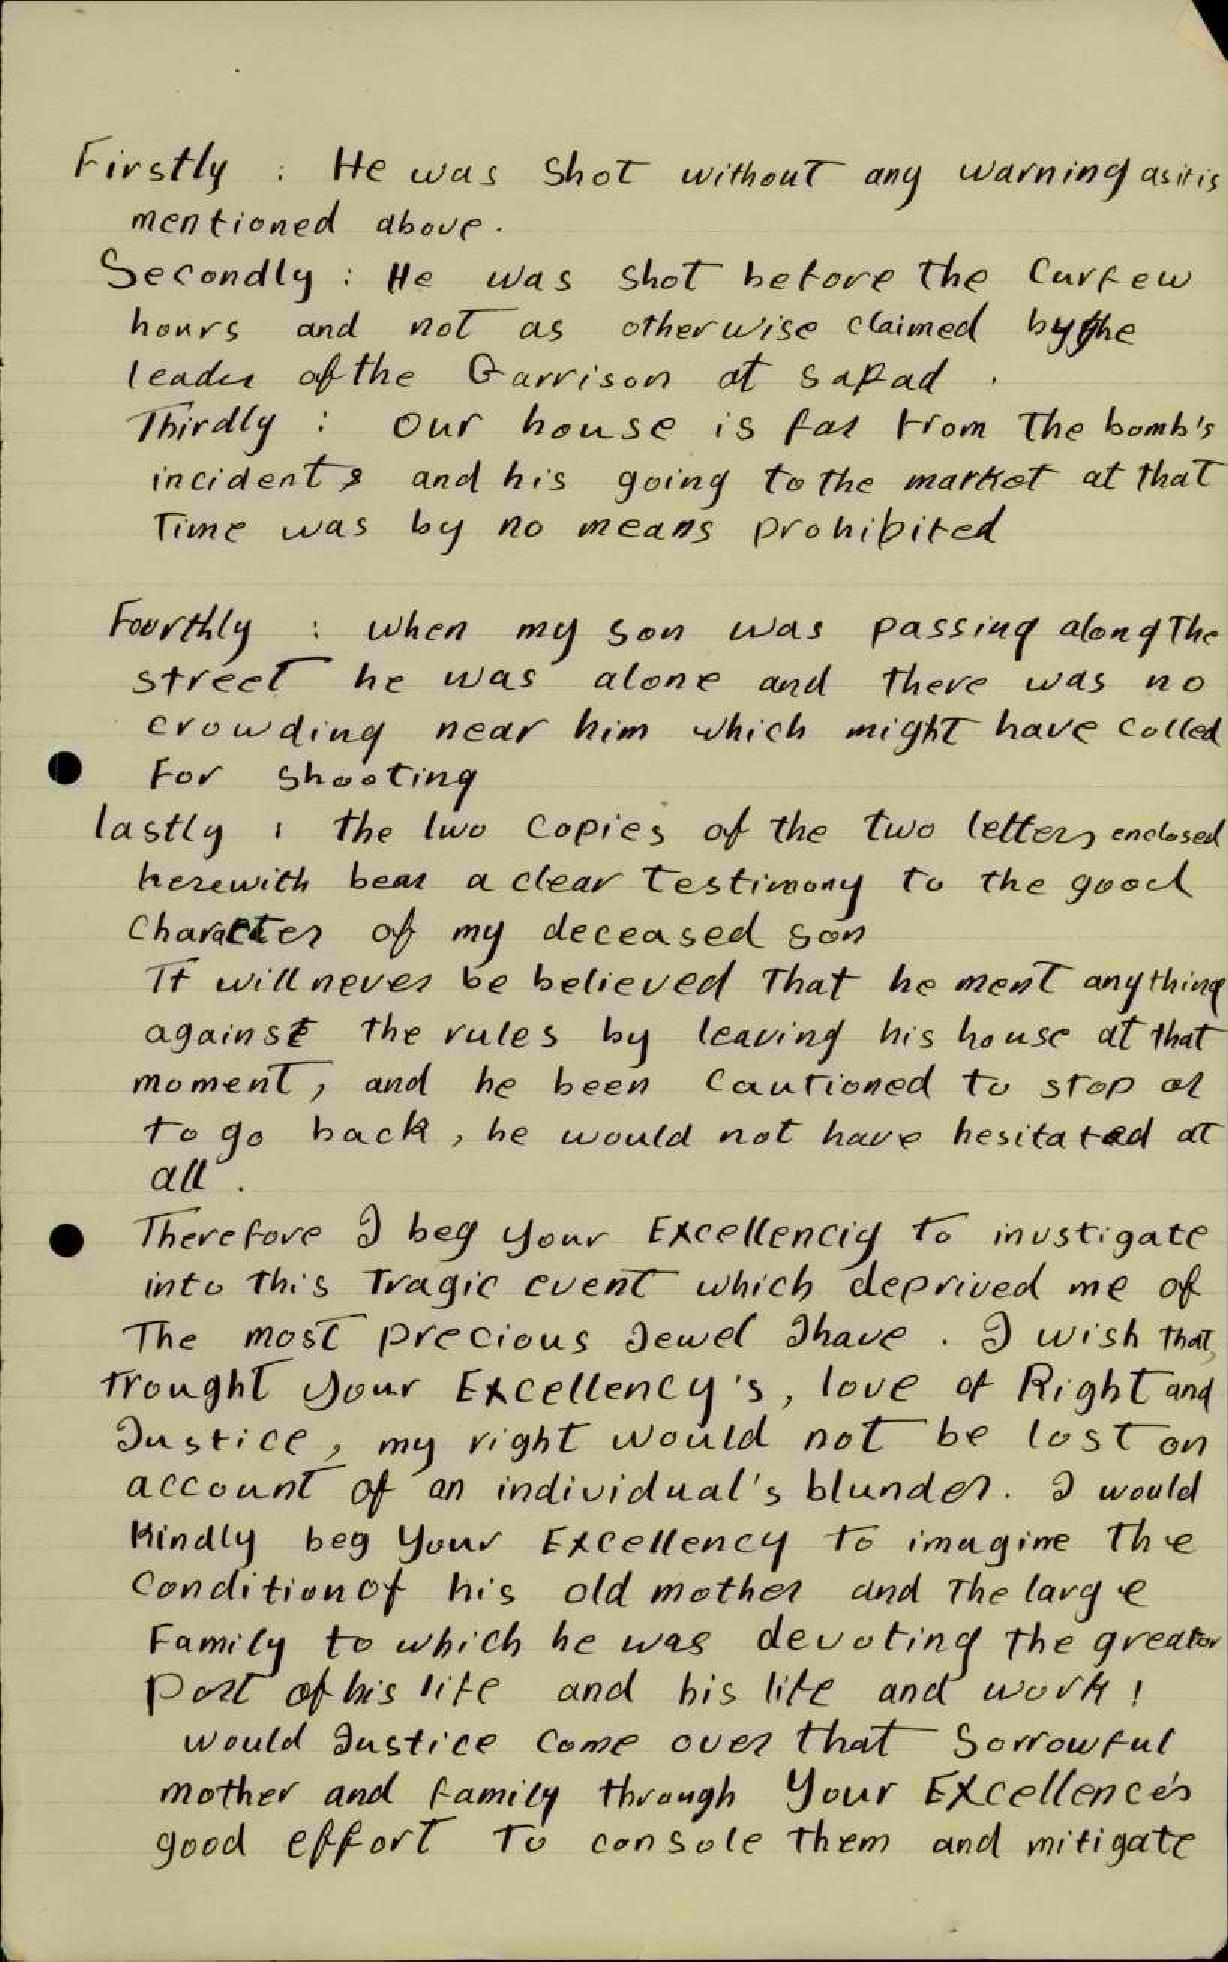 Firstly : He was shot without any warning as it is
mentioned above.
Secondly : He was shot before the Curfew
hours and not as otherwise claimed by the
leader of the Garrison at Safad .
Thirdly : Our house is far from the bomb's
incidents and his going to the market at that
Time was by no means prohibited
Fourthly : when my son was passing along The
street he was alone and there was no
crowding near him which might have Colled
For shooting
lastly : the two copies of the two letters enclosed
herewith bear a clear Testimony to the good
Character of my deceased son
It will never be believed That he ment anything
against the rules by leaving his house at that
moment, and he been Cautioned to stop or
to go back, he would not have hesitated at
all .
Therefore I beg your Excellenciy to invstigate
into this Tragic event which deprived me of
The most precious Jewel I have . I wish that,
trought your Excellency's, love of Right and
Justice, my right would not be lost on
account of an individual's blunder. I would
Kindly beg Your Excellency to imagine the
Condition of his old mother and The large
Family to which he was devoting the greator
Part of his life and his life and work !
would Justice come over that Sorrowful
mother and family through Your Excellence's
good effort To console them and mitigate